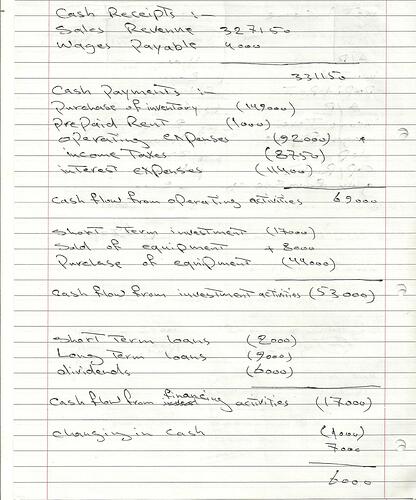 Cash Receipts :-
Sales Revenue 327150
Wages Payable 4000
331150
Cash Payments :-
Purchase of inventory (149000)
prepaid Rent (1000)
operating expenses (92000)
income Taxes (8750)
interest expenses (11400)
Cash flow from operating activities 69000
Short Term investment (17000)
Sold of equipment + 8000
Purchase of equipment (44000)
Cash flow from investment activities (53000)
Short Term loans (2000)
Long Term loans (9000)
dividends (6000)
Cash flow from financing activities (17000)
changing in Cash (1000)
7000
6000